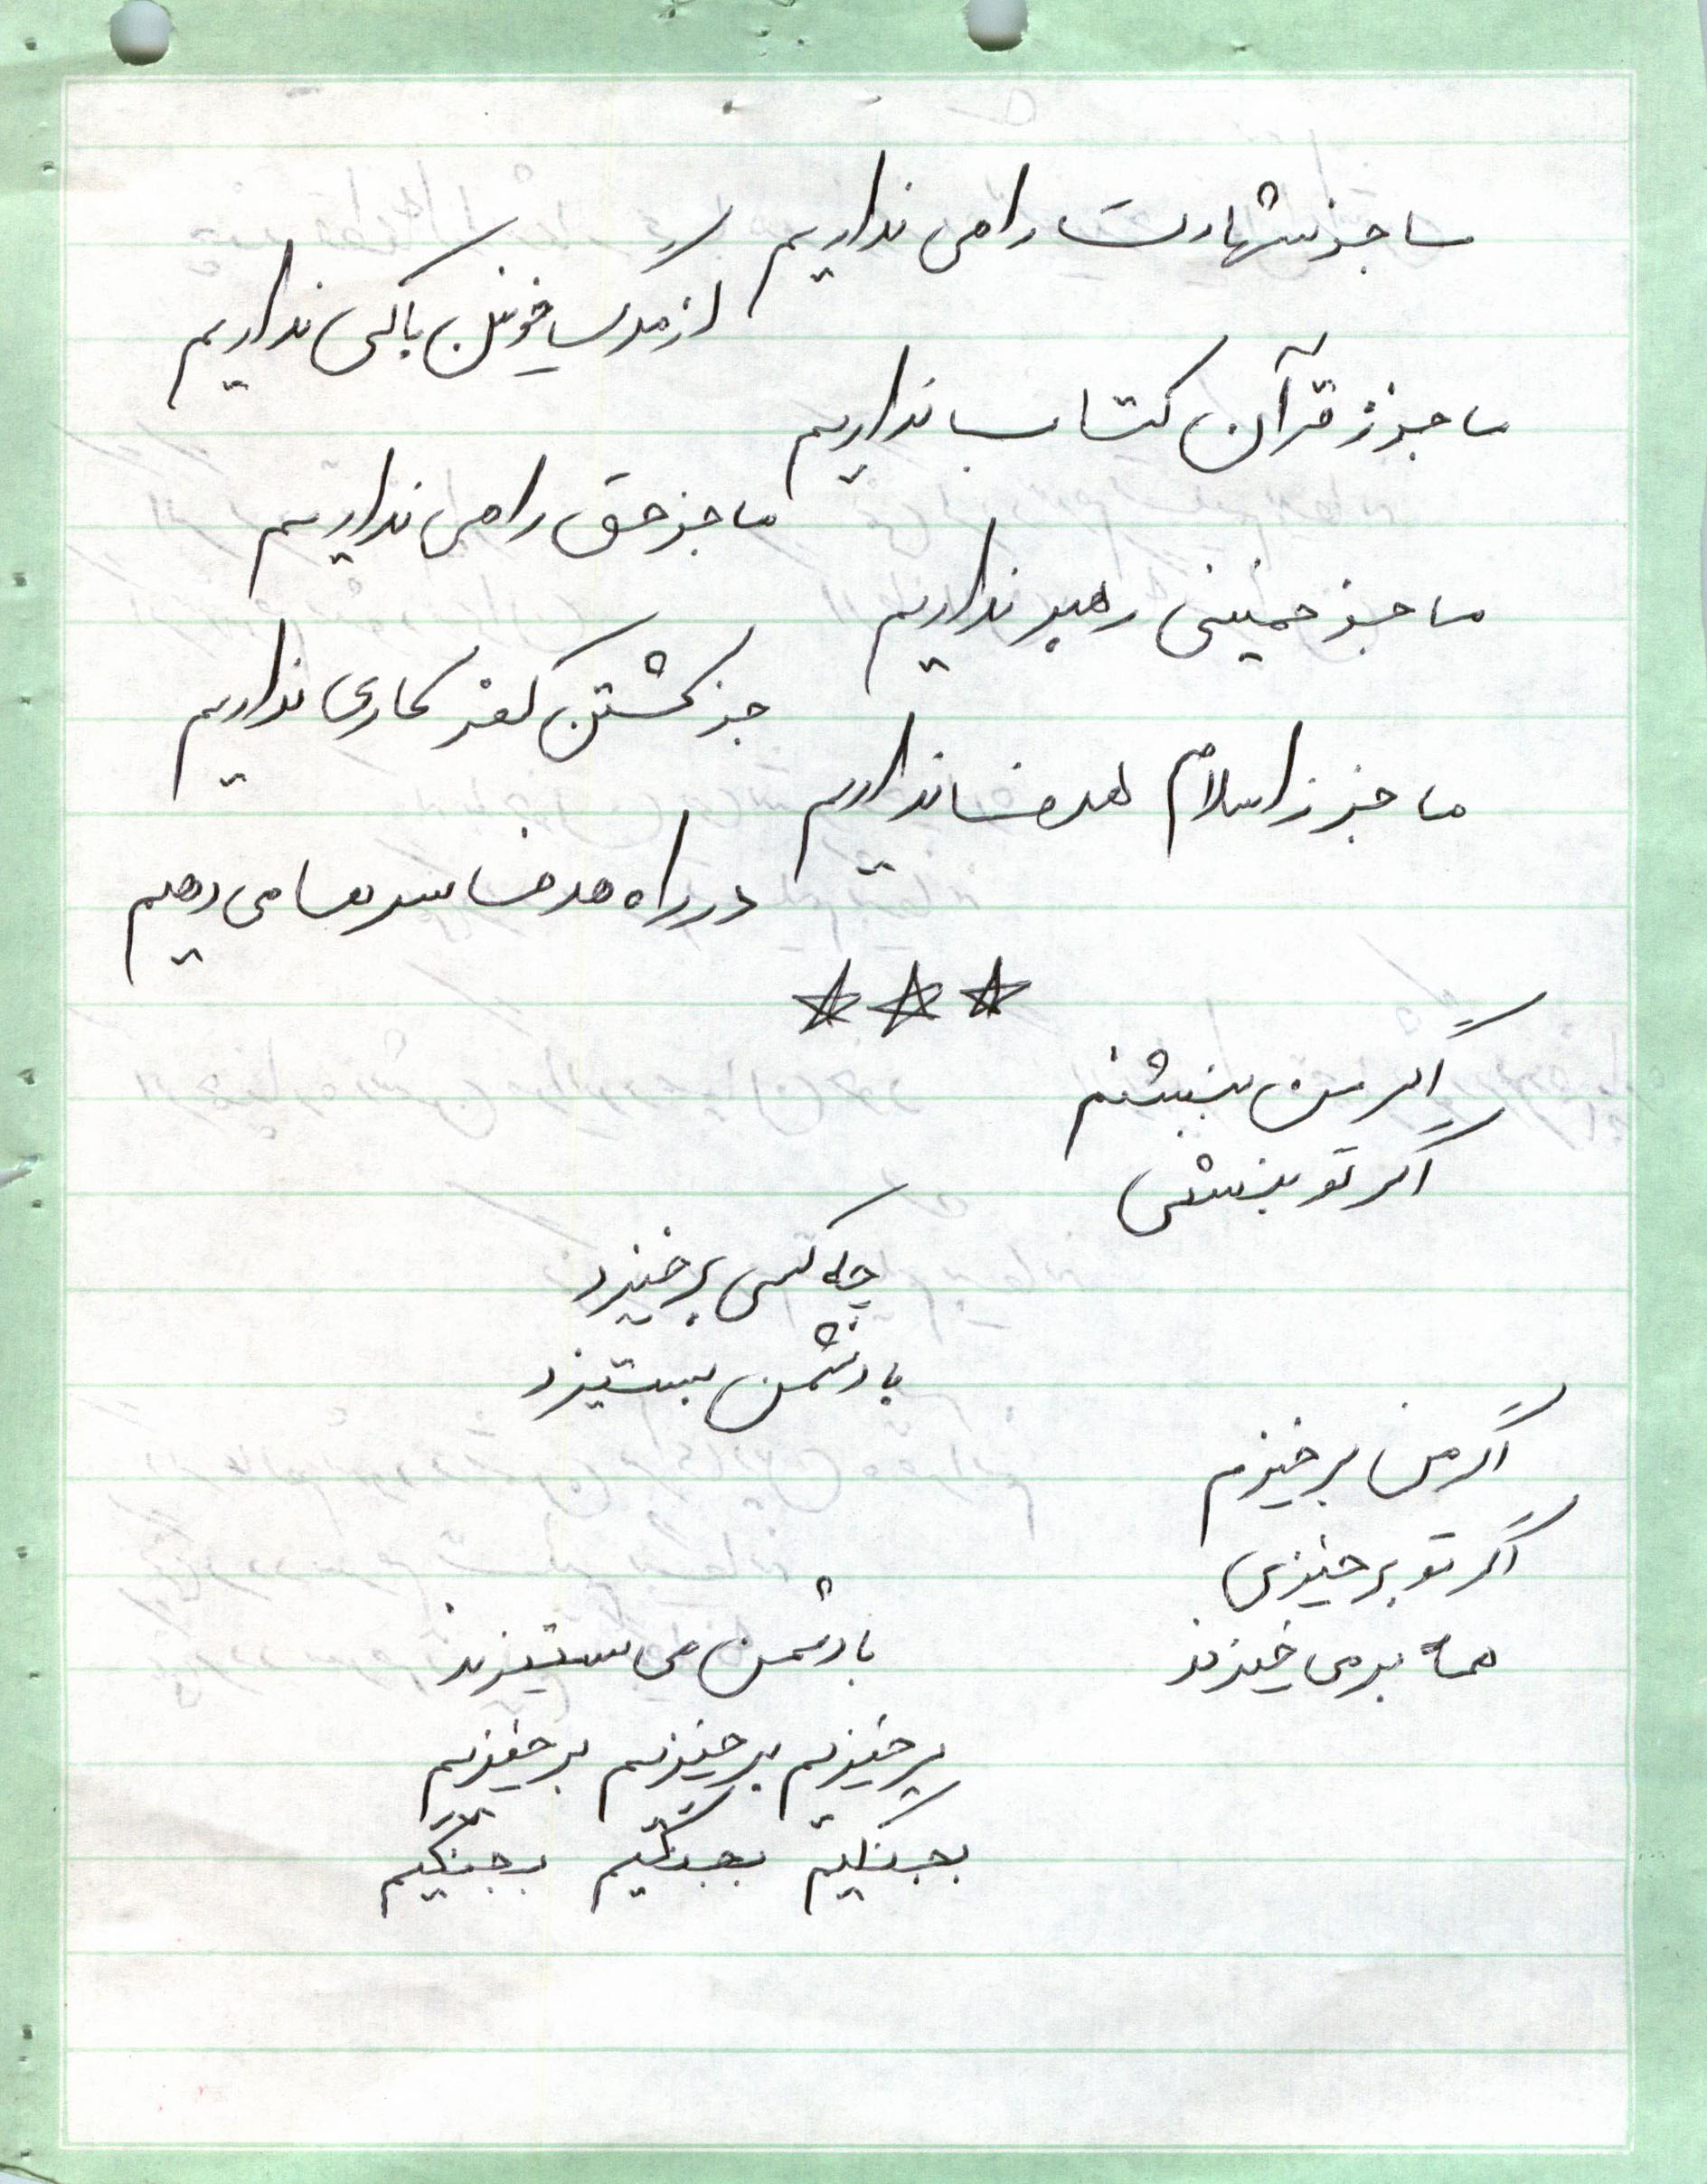 ما جز شهادت راهی نداریم
از مرگ خونین باکی نداریم
ما جز ز قرآن کتاب نداریم
ما جز حق راهی نداریم
ما جز خمینی رهبر نداریم
جز کشتن کفر کاری نداریم
ما جز ز اسلام هدف نداریم
در راه هدف سر می دهیم
اگر من بنشینم
اگر تو بنشینی
چه کسی برخیزد
با دشمن بستیزد
اگر من برخیزم
اگر تو برخیزی
همه برمی خیزند
با دشمن می ستیزند
برخیزیم برخیزیم برخیزیم
بجنگیم بجنگیم بجنگیم